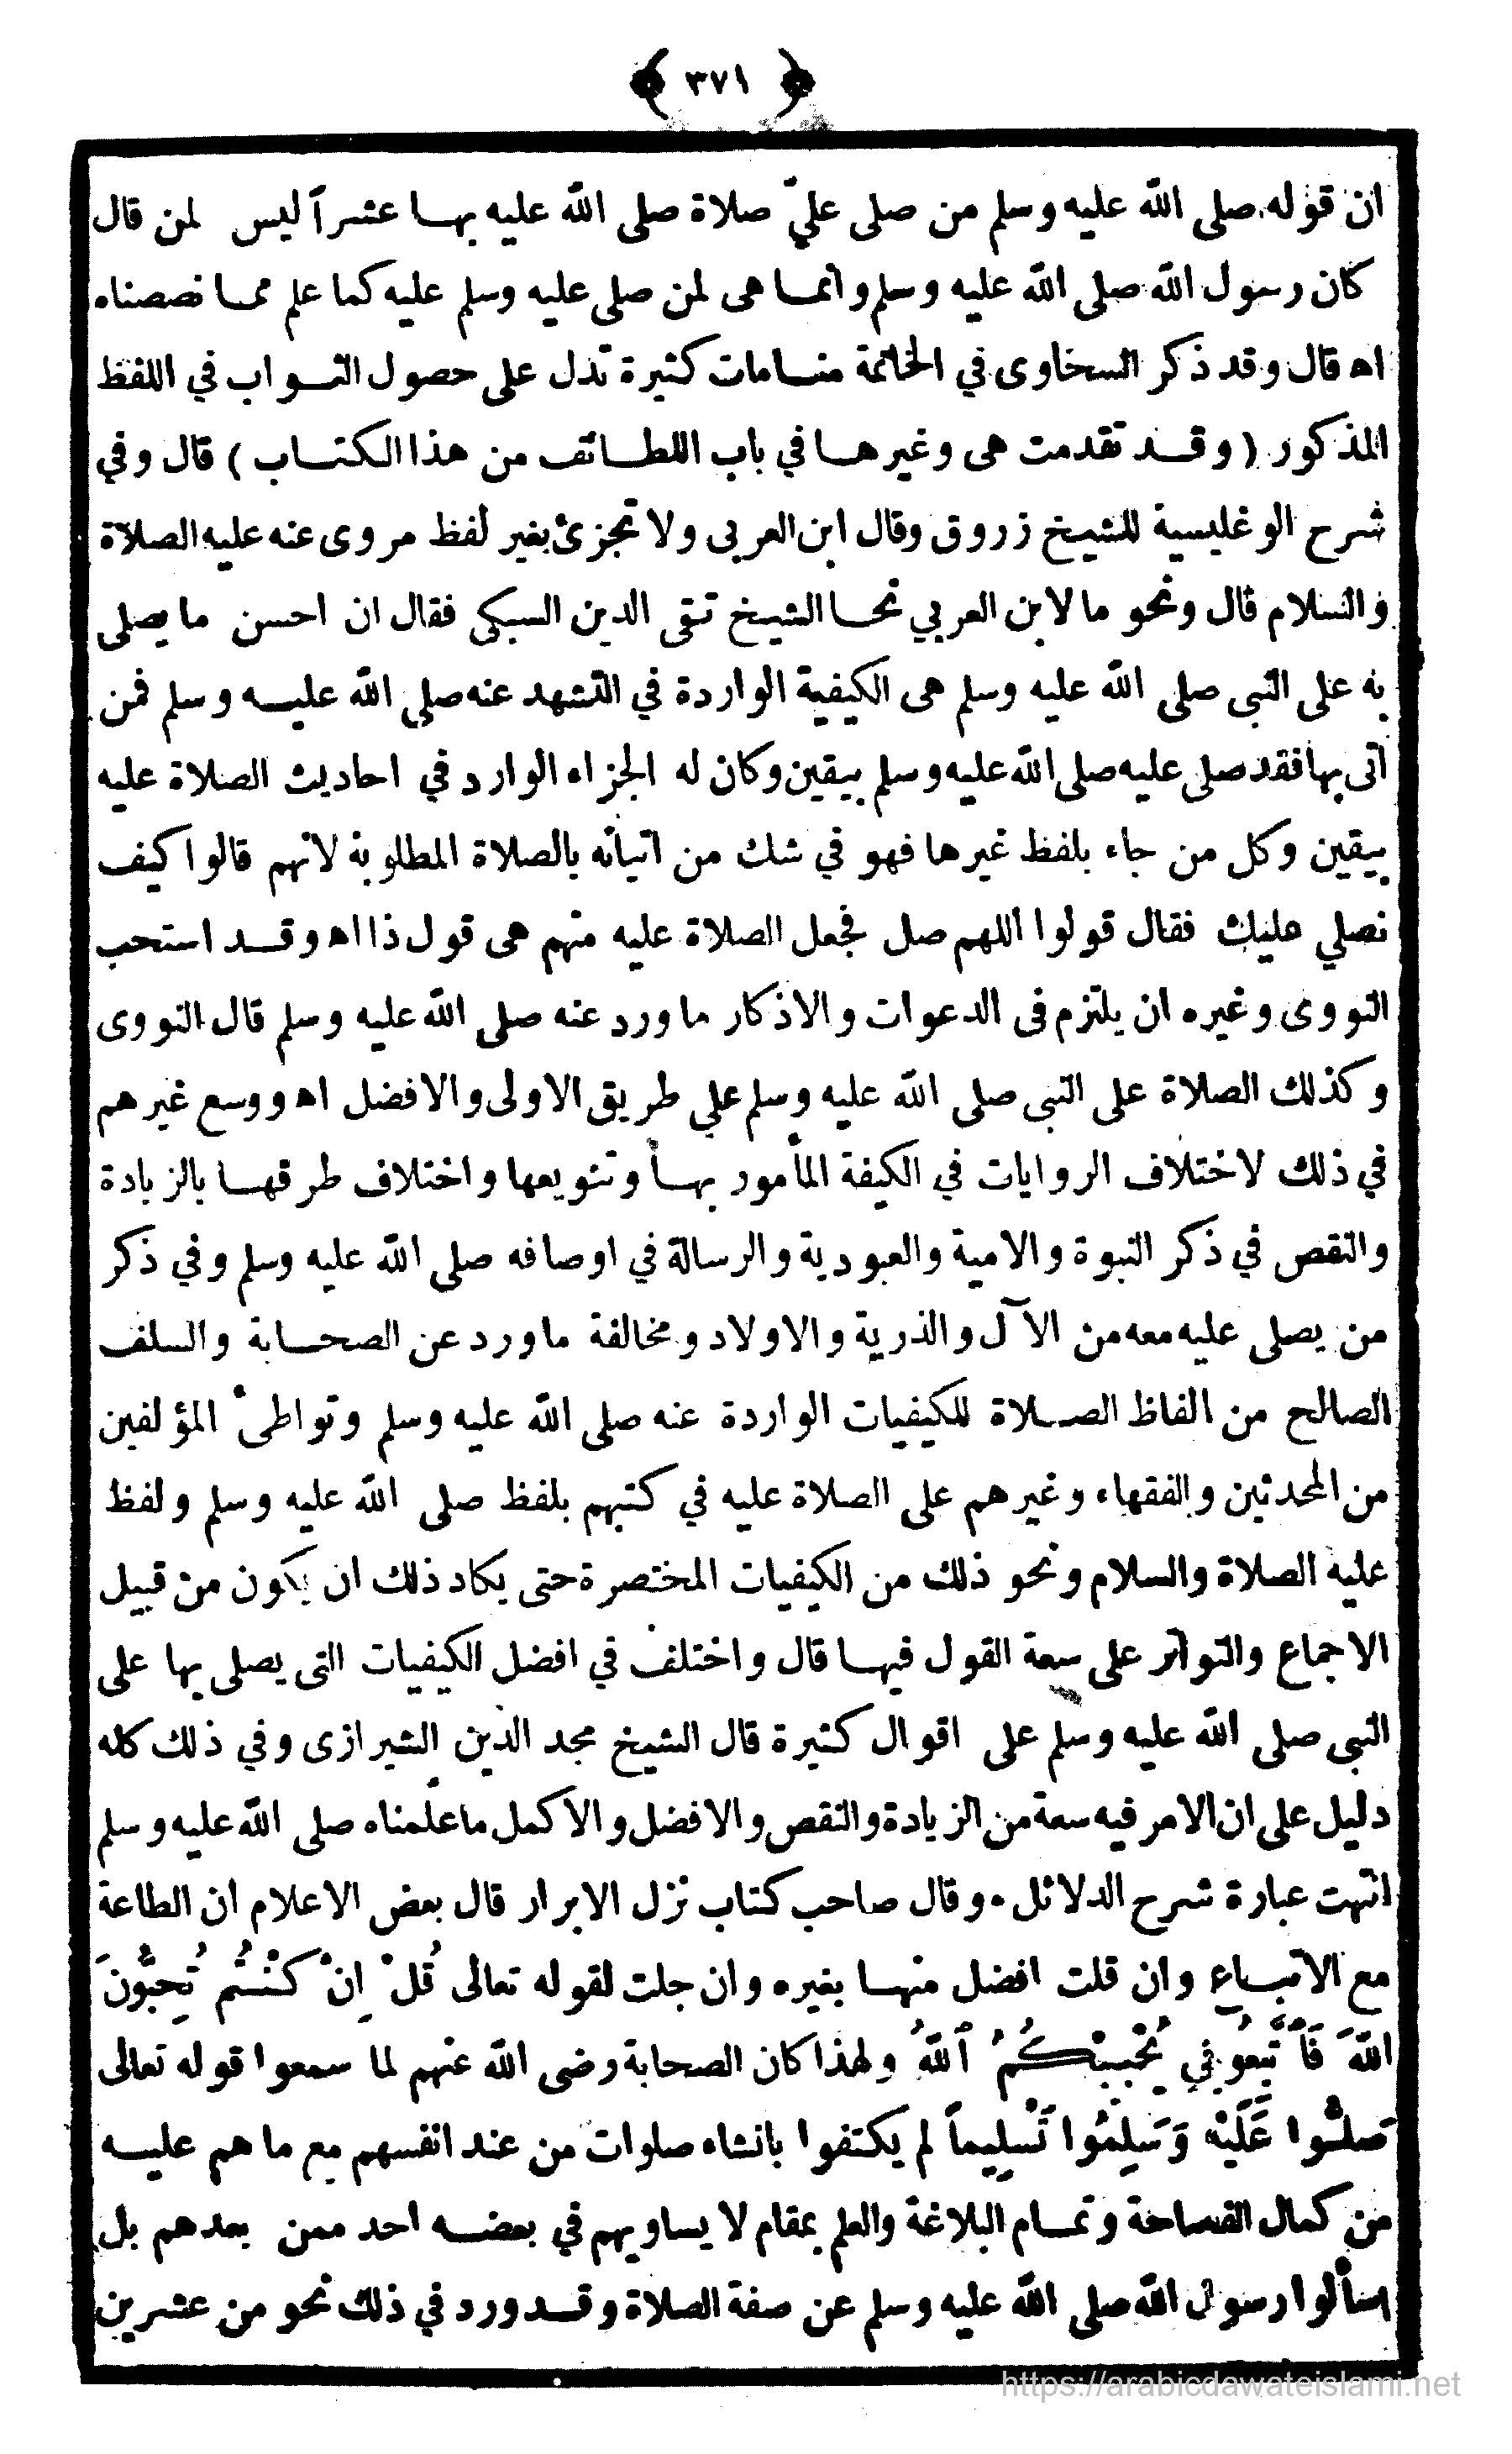 ﴿ ٣٧١ ﴾
ان قوله صلى الله عليه وسلم من صلى عليّ صلاة صلى الله عليه بها عشراً ليس لمن قال
كان رسول الله صلى الله عليه وسلم وانما هى لمن صلى عليه وسلم عليه كما علم مما نصصناه
اه قال وقد ذكر السخاوى في الخاتمة منامات كثيرة تدل على حصول الثواب في اللفظ
المذكور ( وقد تقدمت هى وغيرها في باب اللطائف من هذا الكتاب ) قال وفي
شرح الوغليسية للشيخ زروق وقال ابن العربى ولا تجزئ بغير لفظ مروى عنه عليه الصلاة
والسلام قال ونحو ما لابن العربي نحا الشيخ تقى الدين السبكى فقال ان احسن ما يصلى
به على النبى صلى الله عليه وسلم هى الكيفية الواردة في التشهد عنه صلى الله عليه وسلم فمن
اتى بها فقد صلى عليه صلى الله عليه وسلم بيقين وكان له الجزاء الوارد في احاديث الصلاة عليه
بيقين وكل من جاء بلفظ غيرها فهو في شك من اتيانه بالصلاة المطلوبة لانهم قالوا كيف
نصلي عليك فقال قولوا اللهم صل فجعل الصلاة عليه منهم هى قول ذا اه وقد استحب
النووى وغيره ان يلتزم فى الدعوات والاذكار ما ورد عنه صلى الله عليه وسلم قال النووى
وكذلك الصلاة على النبى صلى الله عليه وسلم علي طريق الاولى والافضل اه ووسع غيرهم
في ذلك لاختلاف الروايات في الكيفة المأمور بها وتنويعها واختلاف طرقها بالزيادة
والنقص في ذكر النبوة والامية والعبودية والرسالة في اوصافه صلى الله عليه وسلم وفي ذكر
من يصلى عليه معه من الآل والذرية والاولاد ومخالفة ما ورد عن الصحابة والسلف
الصالح من الفاظ الصلاة للكيفيات الواردة عنه صلى الله عليه وسلم وتواطئ المؤلفين
من المحدثين والفقهاء وغيرهم على الصلاة عليه في كتبهم بلفظ صلى الله عليه وسلم ولفظ
عليه الصلاة والسلام ونحو ذلك من الكيفيات المختصرة حتى يكاد ذلك ان يكون من قبيل
الاجماع والتواتر على سعة القول فيها قال واختلف في افضل الكيفيات التى يصلى بها على
النبى صلى الله عليه وسلم على اقوال كثيرة قال الشيخ مجد الدين الشيرازى وفي ذلك كله
دليل على ان الامر فيه سعة من الزيادة والنقص والافضل والاكمل ما علمناه صلى الله عليه وسلم
انتهت عبارة شرح الدلائل • وقال صاحب كتاب نزل الابرار قال بعض الاعلام ان الطاعة
مع الاتباع وان قلت افضل منها بغيره وان جلت لقوله تعالى قُلْ اِنْ كُنْتُم تُحِبُّونَ
اللهَ فَاتَّبِعُونِي يُحْبِبْكُمُ ٱللهُ ولهذا كان الصحابة رضى الله عنهم لما سمعوا قوله تعالى
صَلُّوا عَلَيْهِ وَسَلِّمُوا تَسْلِيماً لم يكتفوا بانشاء صلوات من عند انفسهم مع ما هم عليه
من كمال الفصاحة وتمام البلاغة والعلم بمقام لا يساويهم في بعضه احد ممن بعدهم بل
اسألوا رسول الله صلى الله عليه وسلم عن صفة الصلاة وقد ورد في ذلك نحو من عشرين
https://arabicdawateislami.net